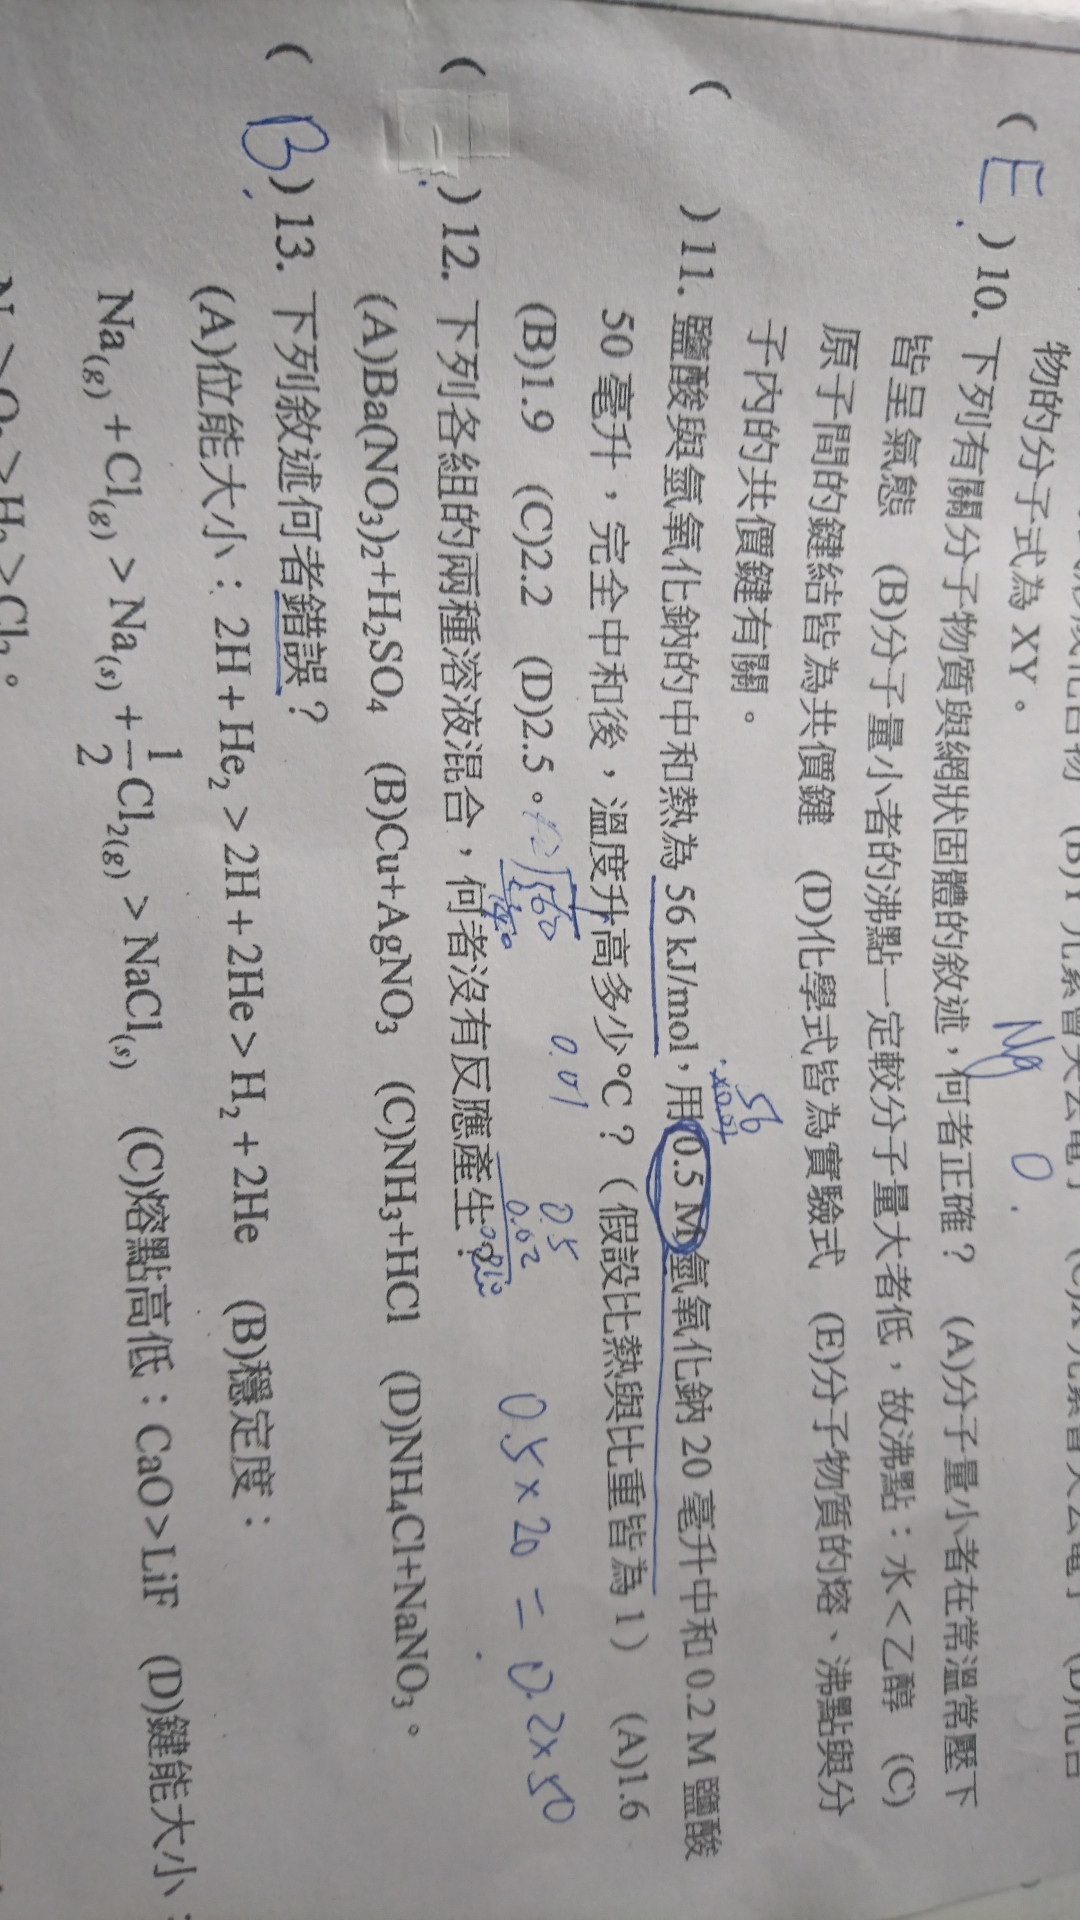 物的分子式為 XY。
( E ) 10. 下列有關分子物質與網狀固體的敘述，何者正確？ (A)分子量小者在常溫常壓下
皆呈氣態 (B)分子量小者的沸點一定較分子量大者低，故沸點：水<乙醇 (C)
原子間的鍵結皆為共價鍵 (D)化學式皆為實驗式 (E)分子物質的熔、沸點與分
子內的共價鍵有關。
56
×0.01
( ) 11. 鹽酸與氫氧化鈉的中和熱為 56 kJ/mol，用 0.5 M 氫氧化鈉 20 毫升中和 0.2 M 鹽酸
50 毫升，完全中和後，溫度升高多少℃？（假設比熱與比重皆為 1） (A)1.6
(B)1.9 (C)2.2 (D)2.5。
560
0.01
0.5
0.02
0.5×20 = 0.2×50
( ) 12. 下列各組的兩種溶液混合，何者沒有反應產生？
(A)Ba(NO₃)₂+H₂SO₄ (B)Cu+AgNO₃ (C)NH₃+HCl (D)NH₄Cl+NaNO₃。
( B ) 13. 下列敘述何者錯誤？
(A)位能大小：2H + He₂ > 2H + 2He > H₂ + 2He (B)穩定度：
Na(g) + Cl(g) > Na(s) + 1/2 Cl₂(g) > NaCl(s) (C)熔點高低：CaO > LiF (D)鍵能大小：